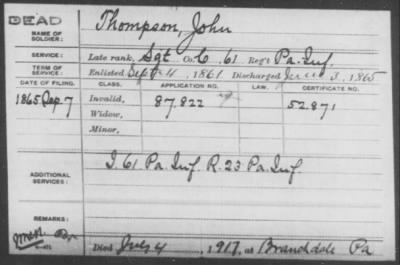 DEAD
NAME OF SOLDIER:
Thompson, John
SERVICE:
Late rank, Sgt Co. C, 61 Reg't Pa. Inf.
TERM OF SERVICE:
Enlisted Sept 4, 1861 Discharged 3, 1865
DATE OF FILING. CLASS. APPLICATION NO. LAW. CERTIFICATE NO.
1865 Sep. 7 Invalid, 87.822 52.871
Widow,
Minor,
ADDITIONAL SERVICES:
I. 61 Pa. Inf. R. 23 Pa. Inf.
REMARKS:
Died July 4, 1917, at Branchdale Pa